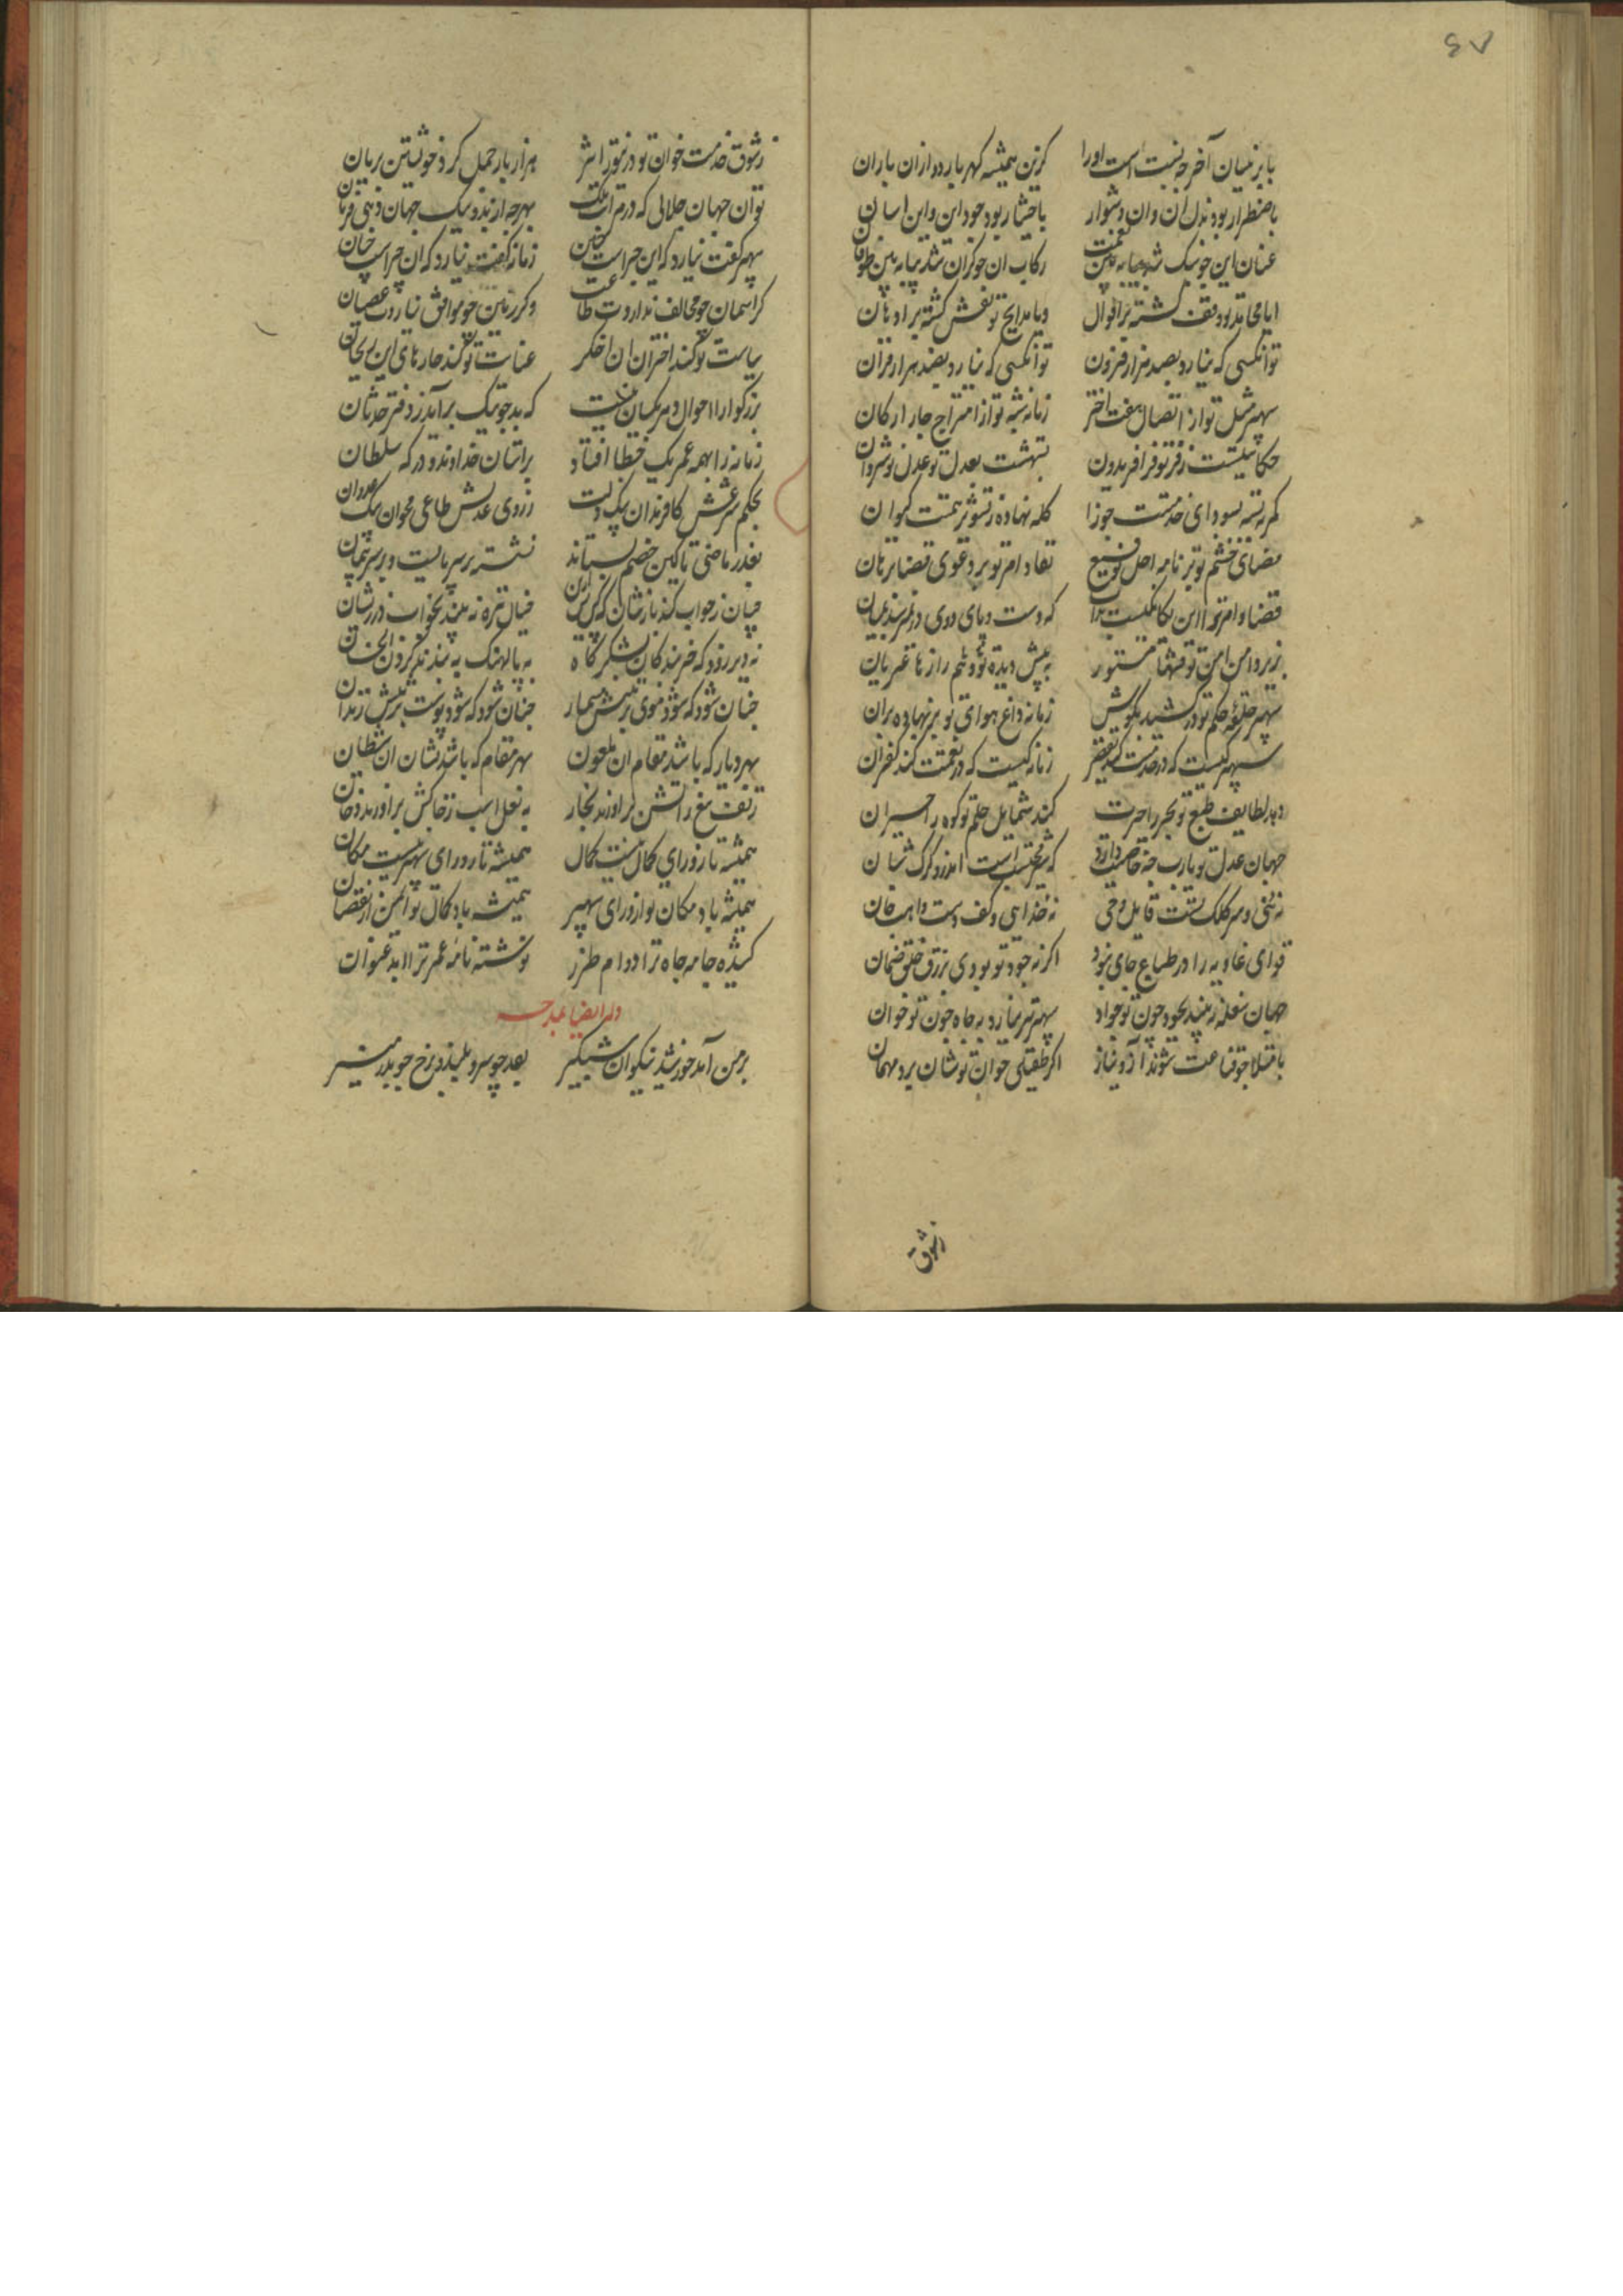 ۶۷
با بر نیسان آخر چه نسبت است او را
کزین همیشه گهر بارد و ازان باران
باضطرار بود بذل آن و آن دشوار
باختیار بود جود این و این آسان
عنان این چو سبک شد
رکاب آن چو گران شد
ایا محامد تو وقف گشته بر اقوال
ویا مدایح تو نقش گشته بر اذهان
تو آنکسی که نیارد بصد هزار قرون
تو آنکسی که نیارد بصد هزار قران
سپهر مثل تو از اتصال هفت اختر
زمانه شبه تو از امتزاج چار ارکان
حکایتیست ز فر تو فر افریدون
بعدل تو عدل نوشروان
کمر ببسته بسودای خدمتت جوزا
کله نهاده ز تشویر همتت کیوان
مضای خشم تو بر نامه اجل توقیع
نفاذ امر تو بر دعوی قضا برهان
قضا و امر تو
که دست و پای دوی در
بزیر دامن امن تو فتنها مستور
به پیش دیده وهم تو رازها عریان
سپهر حلقه حکم تو در کشیده بگوش
زمانه داغ هوای تو بر نهاده بران
سپهر کیست که در خدمتت کند تقصیر
زمانه کیست که در نعمتت کند کفران
دهد لطایف طبع تو بحر را حیرت
کند شمایل حلم تو کوه را حیران
جهان عدل تو یا رب چه خاصیت دارد
که محتسب است اندرو گرگ شبان
نه نبی و سر کلک تست قایل وحی
نه خدایی و کف دست واهب جان
قوای غاذیه را در طباع جای نبود
اگر نه جود تو بودی برزق خلق ضمان
جهان سفله نبیند بجود چون تو جواد
سپهر پیر نیارد به جاه چون تو جوان
بامتلا چو قناعت شوند آز و نیاز
اگر طفیلی خوان تو شان برد مهمان
زشوق
ز شوق خدمت خوان تو در تنور اثیر
هزار بار حمل کرد خویشتن بریان
تو آن جهان جلالی که در مراتب ملک
بهر چه از بد و نیک جهان دهی فرمان
سپهر گفت نیارد که این چراست چنین
زمانه گفت نیارد که آن چراست چنان
گر آسمان چو مخالف نداردت طاعت
وگر زمین چو موافق نیاردت عصیان
سیاست تو کند اختران آن اخگر
عنایت تو کند خارهای این ریحان
بزرگوارا احوال دهر یکسان نیست
که بد چو نیک برآید ز دفتر حدثان
زمانه را بهمه عمر یک خطا افتاد
براستان خداوند و درگه سلطان
بحکم
ز روی عدلش طاغی مخوان
بقدر
نشسته بر سر پایست و بر سر پیمان
چنان ز خواب کند بازشان که کس پس ازین
خیال تیره نبیند بخواب در
نه دیر زود که خربندگان لشکرگاه
به پالهنگ ببندند گردن
چنان شود که شود موی بر تنش مسمار
چنان شود که شود پوست بر تنش زندان
بهر دیار که باشد مقام آن ملعون
بهر مقام که باشد نشان آن شیطان
ز تف تیغ ز آتش برآورند بخار
به نعل اسب ز خاکش برآورند دخان
همیشه تا ز ورای کمال نیست کمال
همیشه تا ز ورای سپهر نیست مکان
همیشه باد مکان تو از ورای سپهر
همیشه باد کمال تو ایمن از نقصان
کشیده جامه جاه ترا دوام طراز
نوشته نامه عمر ترا ابد عنوان
وله ایضا یمدحه
بر من آمد خورشید نیکوان شبگیر
بقد چو سرو بلند و برخ چو بدر منیر